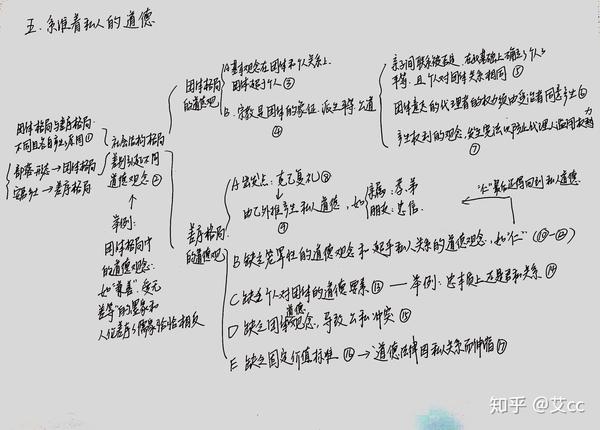 五. 系维着私人的道德
团体格局与差序格局
不同且各自产生原因①
部落形态→团体格局
安居乡土→差序格局
社会结构格局
差别引起不同
道德观念②
举例:
团体格局中
的道德观念:
如"兼善"爱无
差等"的墨家和
人伦差序儒家恰恰相反
团体格局
的道德观
A 基本观念在团体和个人关系上.
团体超于个人③
B. 宗教是团体的象征, 派生平等、公道
④
亲子间联系被否定, 在此基础上确立了个人
平等, 且个人对团体关系相同⑤
团体意志的代理者的权力须由受治者同意产生⑥
产生权利的观念, 发生宪法以防止代理人滥用权力
⑦
差序格局
的道德观
A 出发点: 克己复礼⑧
由己外推产生私人道德, 如
⑨
亲属: 孝、弟
朋友: 忠信.
B 缺乏笼罩性的道德观念和超乎私人关系的道德观念, 如"仁" (⑩-⑫)
"仁"最后还得回到私人道德
C 缺乏个人对团体的道德要素⑬ —— 举例: 忠本质上还是君私关系⑭
D 缺乏团体道德观念, 导致公私冲突⑮
E 缺乏固定价值标准⑯→道德法律因私人关系而伸缩⑰
知乎 @艾cc